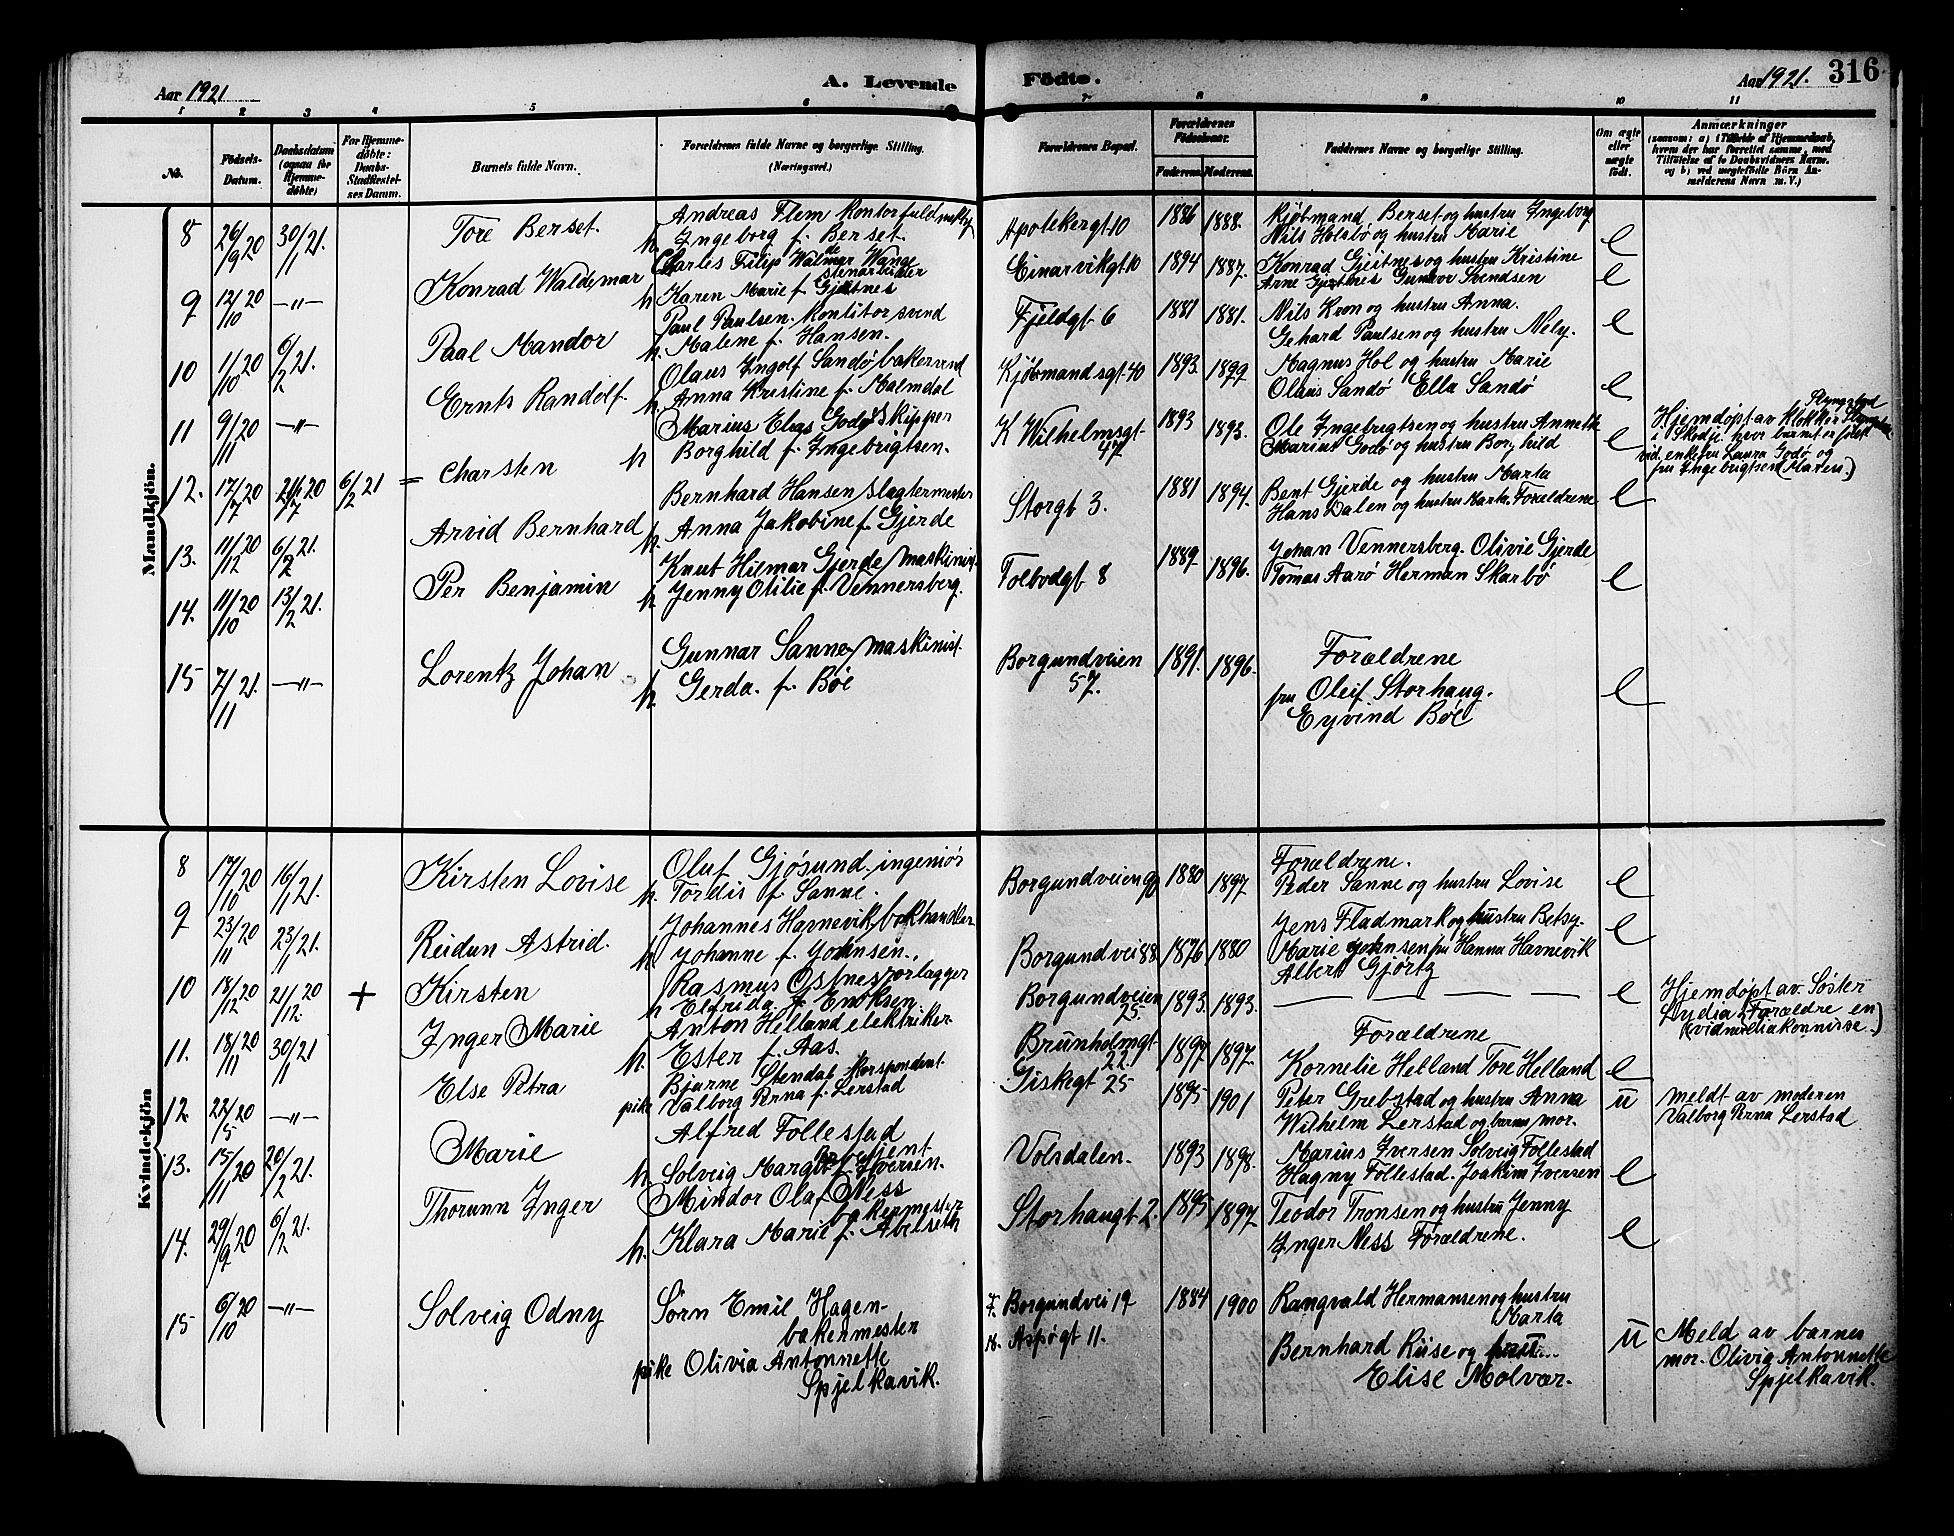 Aar 1921
A. Levende
Födte.
Aar 1921.
316
1 2 3 4 5 6 7 8 9 10 11
No.
Födsels-Datum.
Daabsdatum (ogsaa for Hjemme-döbte)
For Hjemme-döbte: Daabs-Stadfæstel-ses Datum.
Barnets fulde Navn.
Forældrenes fulde Navne og borgerlige Stilling.
(Næringsvei.)
Forældrenes Bopæl.
Forældrenes Födselsaar.
Faderens. Moderens.
Faddernes Navne og borgerlige Stilling.
Om ægte eller uægte födt.
Anmærkninger
(saasom: a) Tilfælde af Hjemmedaab, hvem der har forrettet samme, med Tilföielse af to Daabsvidners Navne, og b) ved uægtefödte Börn An-melderens Navn m. V.)
Mandkjön.
8 26/9 20 30/1 21. Tore Berset. Andreas Flem kontorfuldmektig
h. Ingeborg f. Berset. Apotekergt 10 1886 1888. Kjøbmand Berset og hustru Ingeborg
Nils Holsbø og hustru Marie e
9 12/10 20 —"— Konrad Waldemar Charles Filip Walmar Wange
stenarbeider
h Karen Marie f Gjertnes Einarvikgt 10 1894 1887. Konrad Gjertnes og hustru Kristine
Arne Gjertnes Gunvor Svendsen e
10 11/10 20 6/2 21. Paal Mandor Paul Paulsen. konditorsvend
h. Malene f. Hansen. Fjeldgt 6 1881 1881. Nils Kron og hustru Anna.
Gehard Paulsen og hustru Nely. e
11 9/11 20 —"— Ernts Randolf. Olaus Ingolf Sandø bakersvend
h. Anna Kristine f. Malmdal Kjøbmandsgt. 40 1893. 1899 Magnus Hol og hustru Marie
Olaus Sandø Ella Sandø e
12. 17/7 20 6/2 21 = Charsten Marius Elias Godø Skipper
h Borghild f. Ingebrigtsen. K Wilhelmsgt 47 1893 1893. Ole Ingebrigtsen og hustru Annette
Marius Godø og hustru Borghild e
Hjemdøpt av klokker
i Skodje. hvor barnet er født
vid. enkefru Laura Godø og
fru Ingebrigtsen (Maren.)
13. 11/12 20 6/2 21. Arvid Bernhard Bernhard Hansen slagtermester
h. Anna Jakobine f Gjerde Storgt 3. 1881 1894. Bent Gjerde og hustru Marta
Hans Dalen og hustru Marta. Forældrene e
14. 11/10 20 13/2 21. Per Benjamin Knut Hilmar Gjerde maskinist.
h. Jenny Otilie f. Vennersberg. Tolbodgt 8 1889 1896. Johan Vennersberg. Olivie Gjerde
Tomas Aarø Herman Skarbø e
15 7/11 21. —"— Lorentz Johan Gunnar Sanne maskinist.
h. Gerda. f. Bøe Borgundveien 57. 1891. 1896. Forældrene
fru Oleif Storhaug.
Eyvind Bøe e
Kvindekjön
8 17/10 20 16/1 21. Kirsten Lovise Oluf Gjøsund ingeniør
h. Tordis f Sanne. Borgundveien 90 1880 1897 Forældrene.
Peder Sanne og hustru Lovise e
9 23/11 20 23/1 21. Reidun Astrid. Johannes Havnevik bokhandler
h. Johanne f. Johnsen., Borgundvei 88 1876 1880 Jens Fladmark og hustru Betsy.
Marie Johnsen fru Hanna Havnevik
Albert Gjørtz e
10 18/12 20 21/12 20 + Kirsten Rasmus Ostnes forlægger
h Eldrida f Enoksen. Borgundveien 25. 1893. 1893. — — — — e
Hjemdøpt av Søster
Lydia. Forældre en
(vidner diakonisse.)
11. 18/11 20 30/1 21 Inger Marie Anton Helland elektriker
h. Ester f. Aas. Brunholmgt 22. 1897 1897. Forældrene
Kornelie Helland Tore Helland e
12. 22/5 20 —"— Else Petra Bjarne Stendal korspondent
pike Valborg Perna f. Lerstad Giskegt 25 1895 1901 Peter Grebstad og hustru Anna
Wilhelm Lerstad og barnets mor. u
meldt av moderen
Valborg Perna Lerstad
13. 15/11 20 20/2 21. Marie Alfred Follestad
betjent
h. Solveig Margit f. Iversen. Volsdalen. 1893 1898. Marius Iversen Solveig Follestad
Hagny Follestad. Joakim Iversen e
14. 29/9 20 6/2 21. Thorunn Inger Mindor Olaf Ness
bakermester
h. Klara Marie f. Abelseth Storhaugt 2. 1895 1897 Teodor Tronsen og hustru Jenny
Inger Ness Forældrene. e
15 6/10 20 —"— Solveig Odny Sørn Emil Hagen-
bakermester
pike Olivia Antonnette
Spjelkavik. F. Borgundvei 19
M. Aspøgt 11. 1884 1900 Rangvald Hermansen og hustru
Marta
Bernhard Riise og
Elise Molvær. u
Meld av barnes
mor. Olivia Antonnette
Spjelkavik.